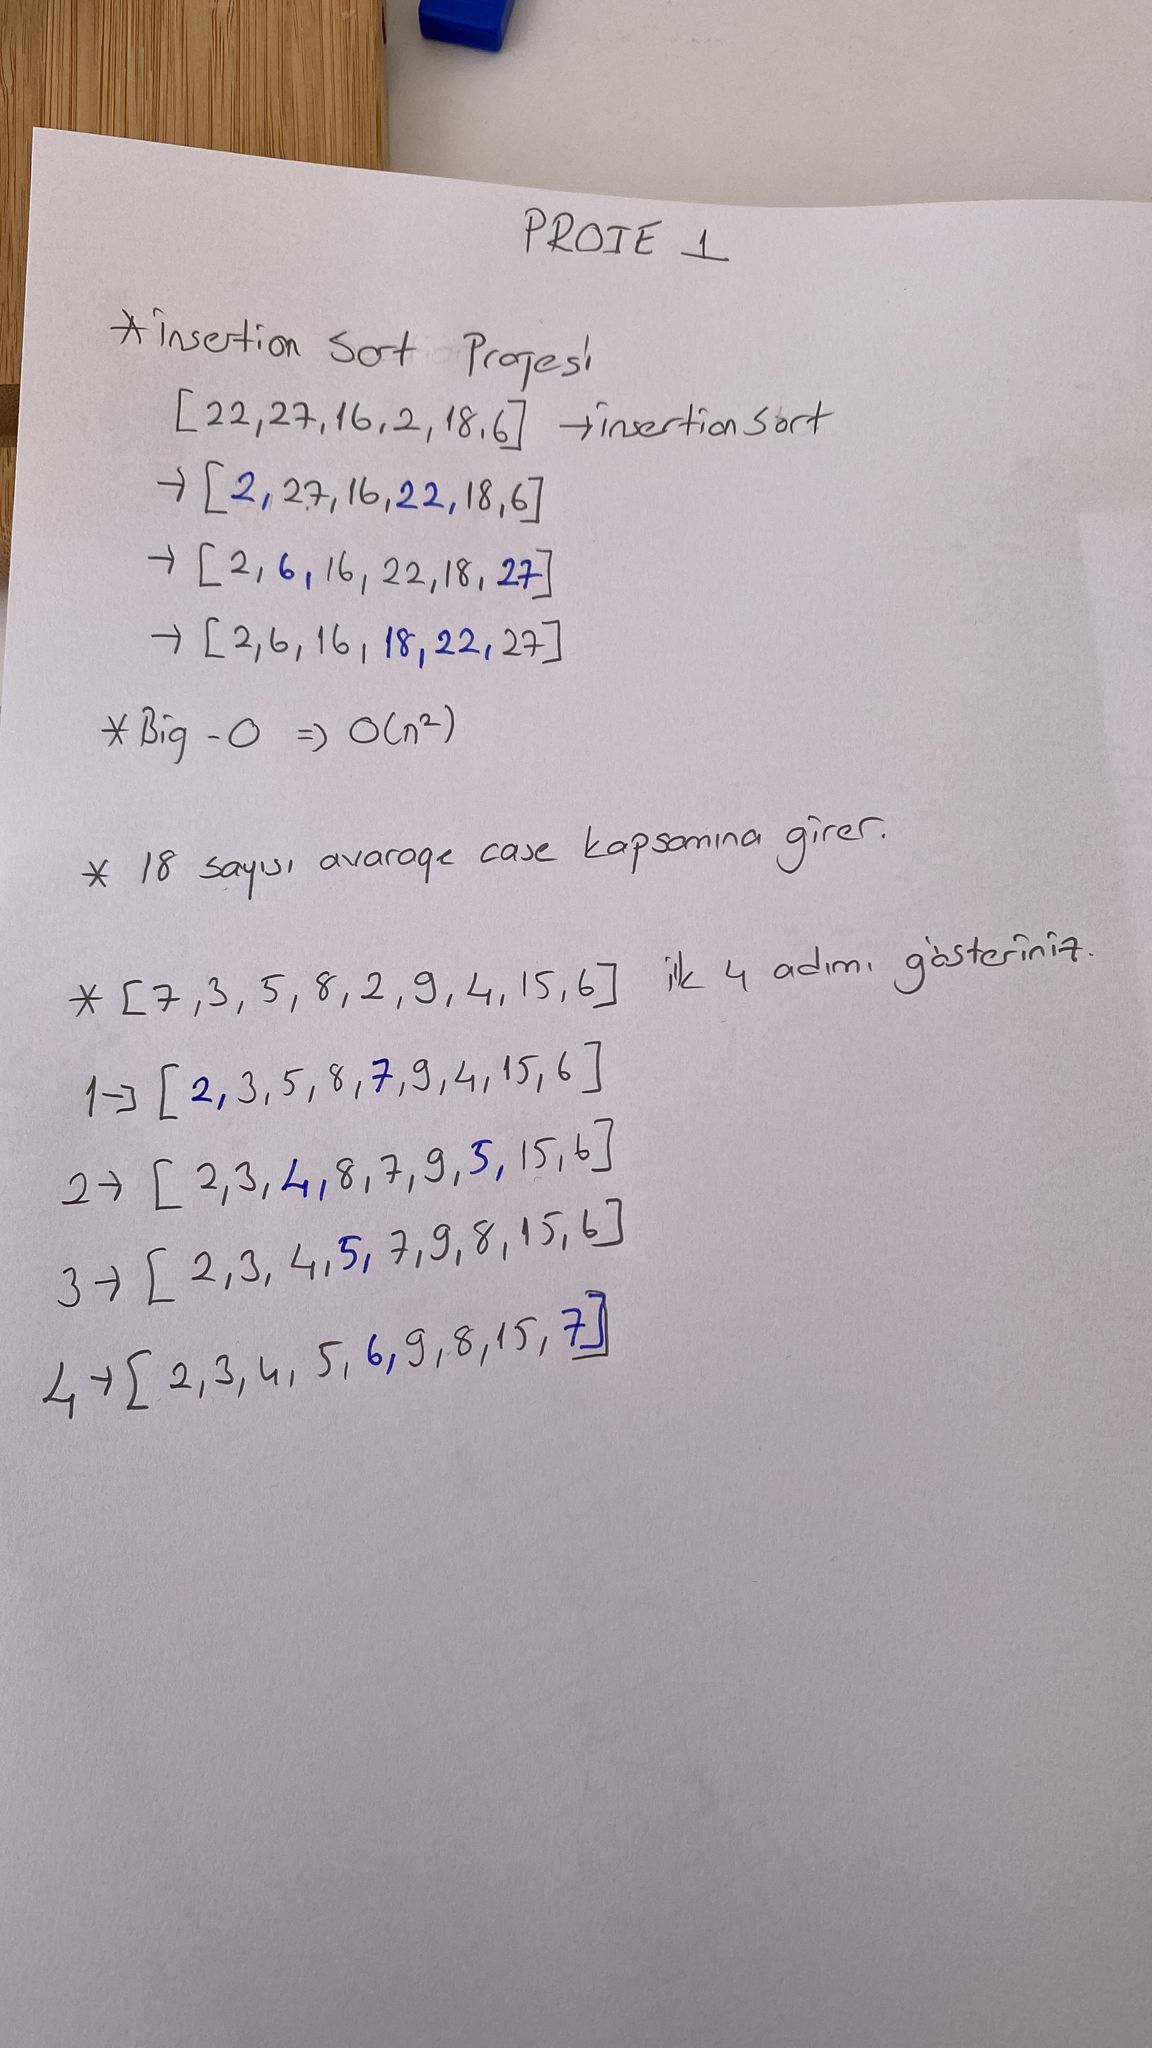 PROJE 1
* insertion Sort Projesi
[22,27,16,2,18,6] → insertion Sort
→ [2,27,16,22,18,6]
→ [2,6,16,22,18,27]
→ [2,6,16,18,22,27]
* Big-O => O(n²)
* 18 sayısı avarage case kapsamına girer.
* [7,3,5,8,2,9,4,15,6] ilk 4 adımı gösteriniz.
1→ [2,3,5,8,7,9,4,15,6]
2→ [2,3,4,8,7,9,5,15,6]
3→ [2,3,4,5,7,9,8,15,6]
4→ [2,3,4,5,6,9,8,15,7]